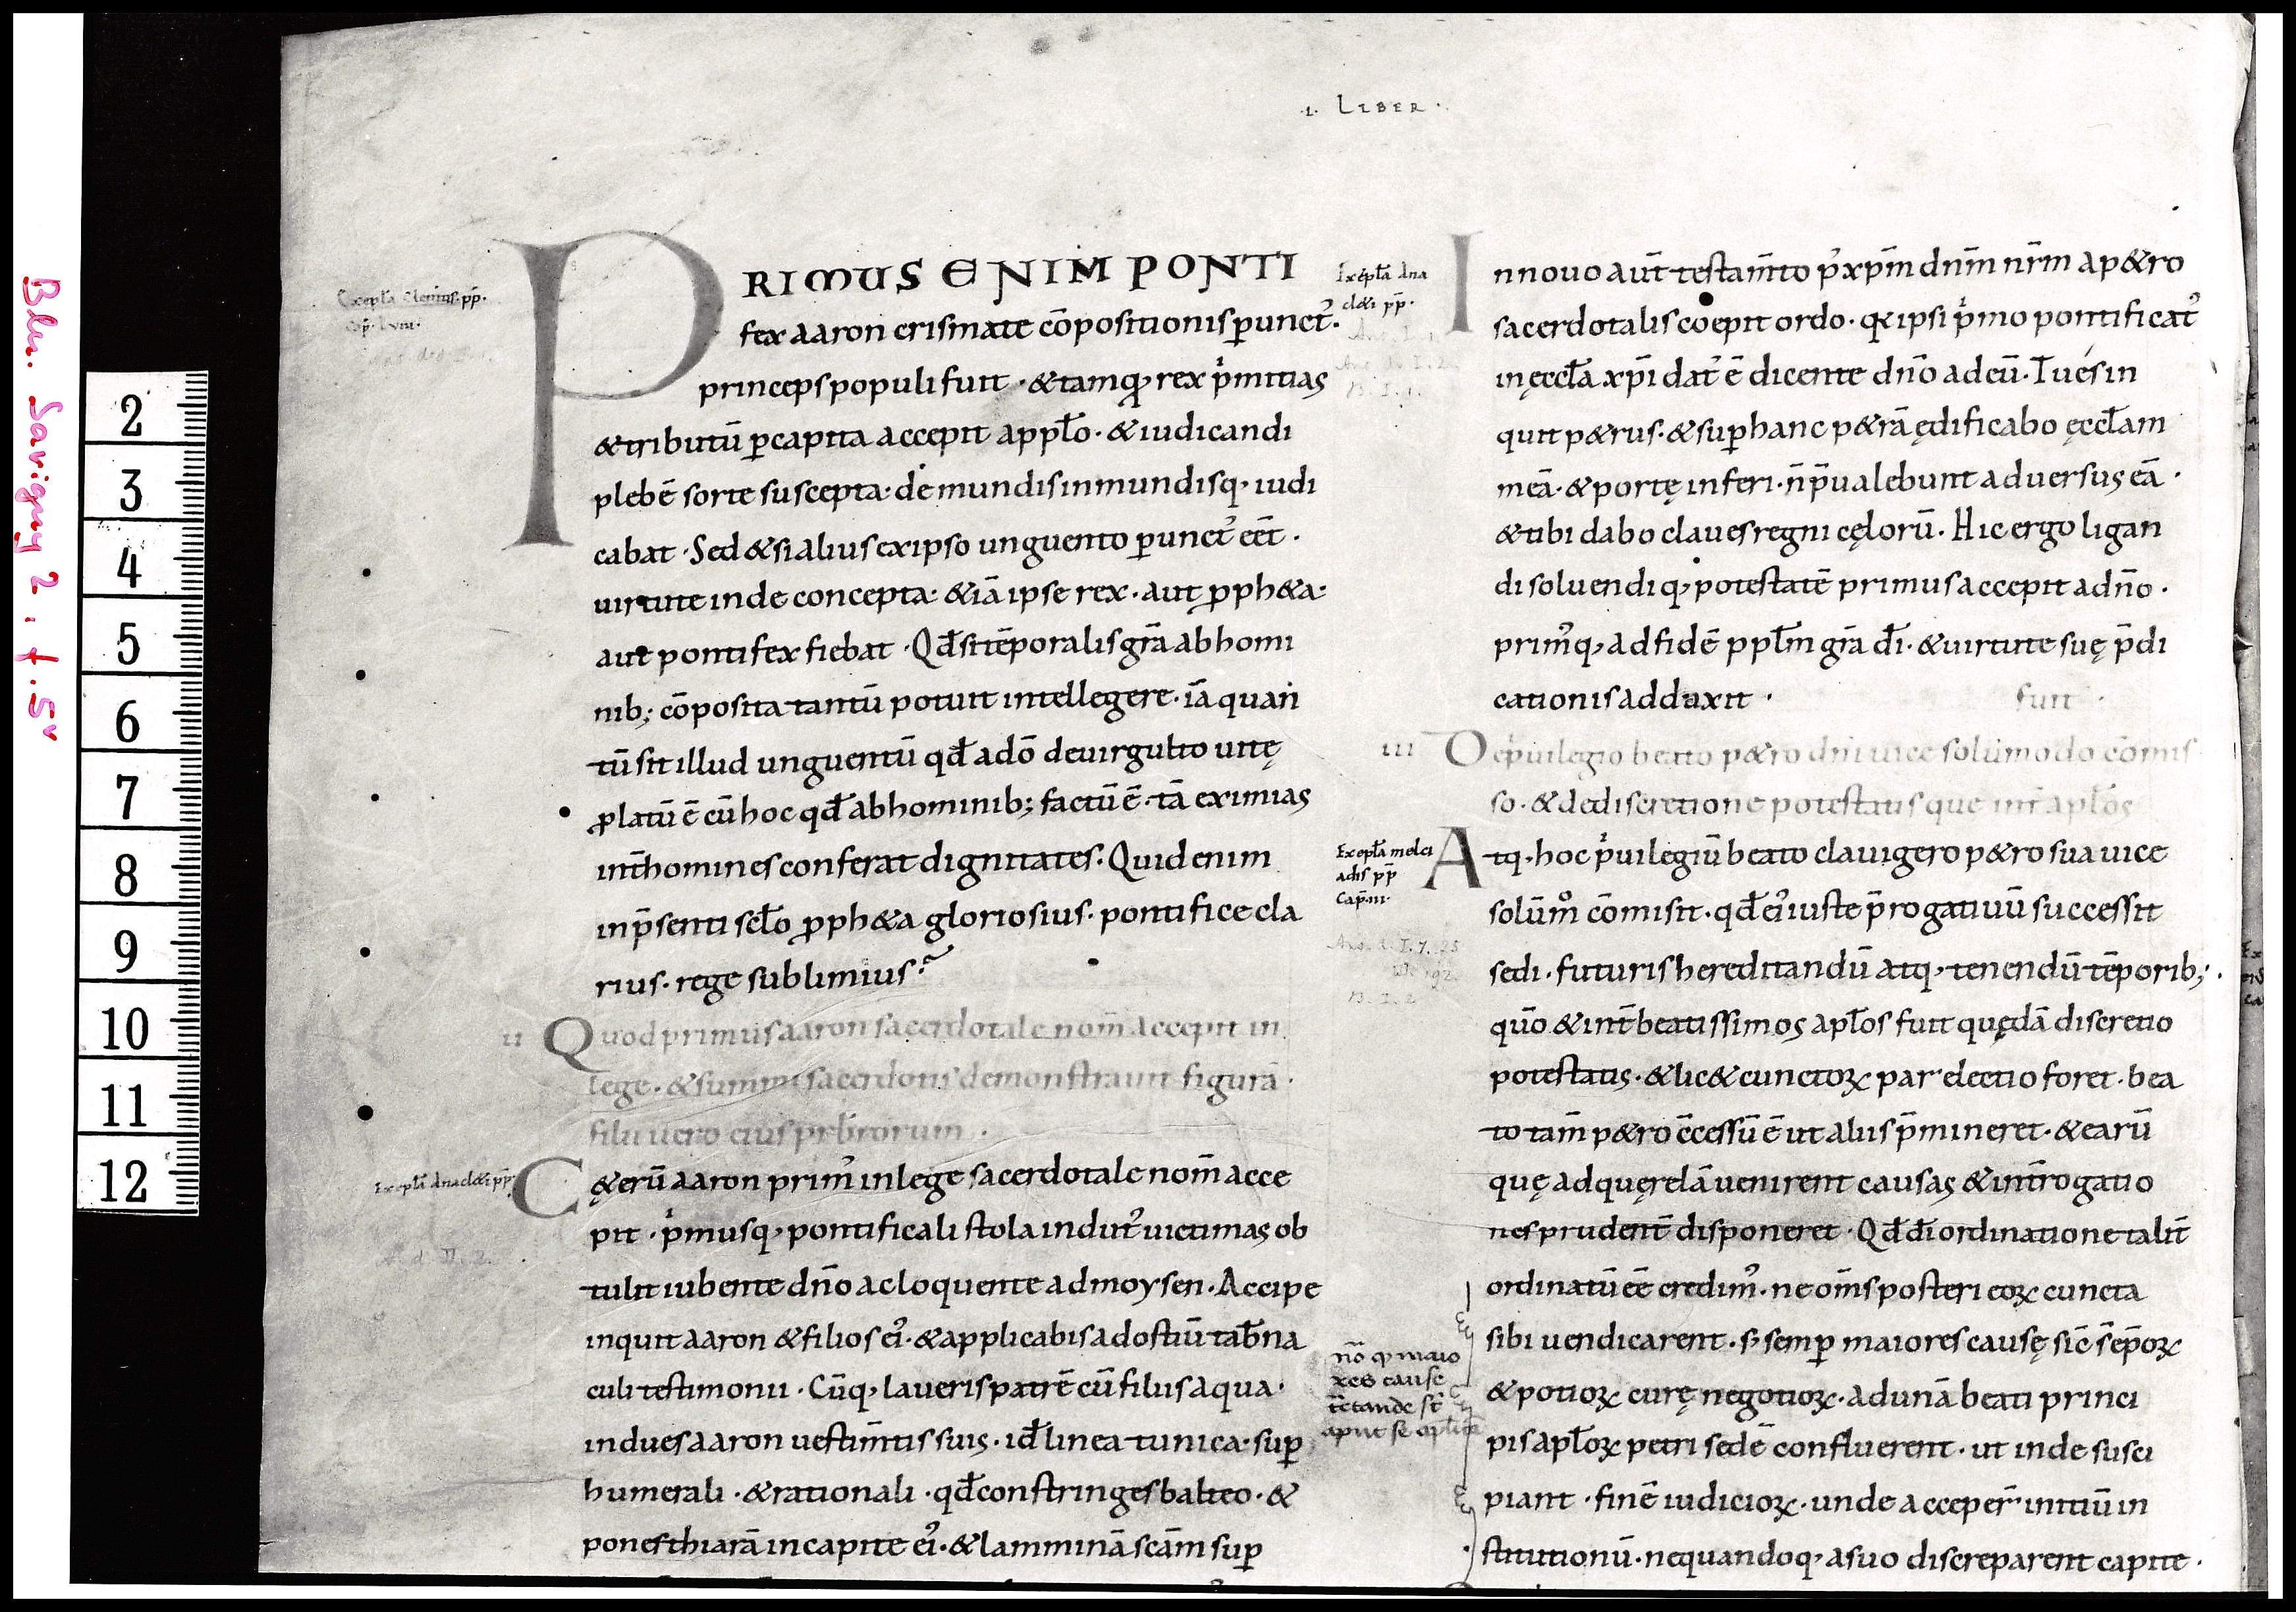 .I. LIBER.
Exepła Clem̄tis pp̄.
PRIMUS ENIM PONTI
fex aaron crismate cōpositionis ꝑunctꝰ.
princeps populi fuit · & tamq; rex pͥmitias
& tributū ꝑ capita accepit a ppło · & iudicandi
plebē sorte suscepta · de mundis inmundisq; iudi
cabat · Sed & si alius ex ipso unguento ꝑunctꝰ eēt ·
uirtute inde concepta · & iā ipse rex · aut ꝓph&a ·
aut pontifex fiebat · Qđ si tēporalis gr̄a ab homi
nib; cōposita tantū potuit intellegere · iā quan
tū sit illud unguentū qđ a dō de uirgulto uitę
ꝓlatū ē cū hoc qđ ab hominib; factū ē · tā eximias
int̄ homines conferat dignitates · Quid enim
in p̄senti scło ꝓph&a gloriosius · pontifice cla
rius · rege sublimius?
II Quod primus aaron sacerdotale nom̄ accepit in
lege · & summi sacerdotis demonstrauit figurā ·
filii uero eius prb̄rorum ·
Exepła Anacl&i pp̄
C&erū aaron primꝰ in lege sacerdotale nom̄ acce
pit · pͥmusq; pontificali stola indutꝰ uictimas ob
tulit iubente dn̄o ac loquente ad moysen · Accipe
inquit aaron & filios eiꝰ · & applicabis ad ostiū tab̄na
culi testimonii · Cūq; laueris patrē cū filiis aqua ·
indues aaron uestim̄tis suis · id̄ linea tunica · suꝑ
humerali · & rationali · qđ constringes balteo · &
pones thiarā in capite eiꝰ · & lamminā scām suꝑ
Exepła Ana
cl&i pp̄ ·
In nouo aut̄ testam̄to p̓ xp̄m dn̄m nr̄m a p&ro
sacerdotalis coepit ordo · q̄a ipsi pͥmo pontificatꝰ
in ęccła xp̄i datꝰ ē dicente dn̄o ad eū · Tu és in
quit p&rus · & suꝑ hanc p&rā ędificabo ęccłam
meā · & portę inferi · n̄ p̄ualebunt aduersus eā ·
& tibi dabo claues regni cęlorū · Hic ergo ligan
di soluendiq; potestatē primus accepit a dn̄o ·
primꝰq; ad fidē ppłm gr̄a dī · & uirtute suę p̄di
cationis adduxit ·
fuit ·
III De pͥuilegio beato p&ro dn̄i uice solūmodo cōmis
so · & de discretione potestatis que int̄ apłos
Exepła melci
adis pp̄
Cap̄ · III ·
Atq; hoc pͥuilegiū beato clauigero p&ro sua uice
solūm̊ cōmisit · qđ eiꝰ iuste p̄rogatiuū successit
sedi · futuris hereditandū atq; tenendū tēporib; ·
qūo & int̄ beatissimos apłos fuit quędā discretio
potestatis · & lic& cunctoꝝ par electio foret · bea
to tam̄ p&ro c̄cessū ē ut aliis p̄mineret · & earū
quę ad quęrelā uenirent causas & int̄rogatio
nes prudent̄ disponeret · Qđ dī ordinatione talit̄
ordinatū eē credimꝰ · ne om̄s posteri eoꝝ cuncta
sibi uendicarent · s; semꝑ maiores causę sic̄ s̄ ep̄oꝝ
& potioꝝ curę negotioꝝ · ad unā beati princi
pis apłoꝝ petri sedē confluerent · ut inde susci
piant · finē iudicioꝝ · unde acceper̄ initiū in
stitutionū · ne quandoq; a suo discreparent capite ·
nō ꝙ maio
res cause
t̄ctande st̄
aput se apłicā
2
3
4
5
6
7
8
9
10
11
12
Bln. Savigny 2, f. 5v